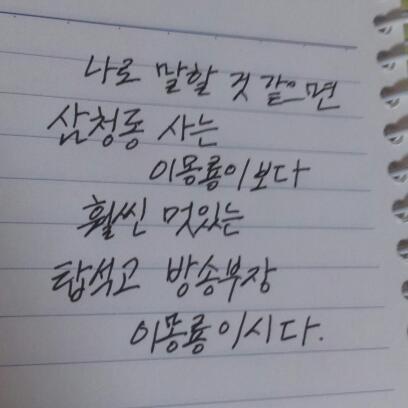 나로 말할 것 같으면
삼청동 사는
이몽룡이보다
훨씬 멋있는
탑석고 방송부장
이몽룡이시다.